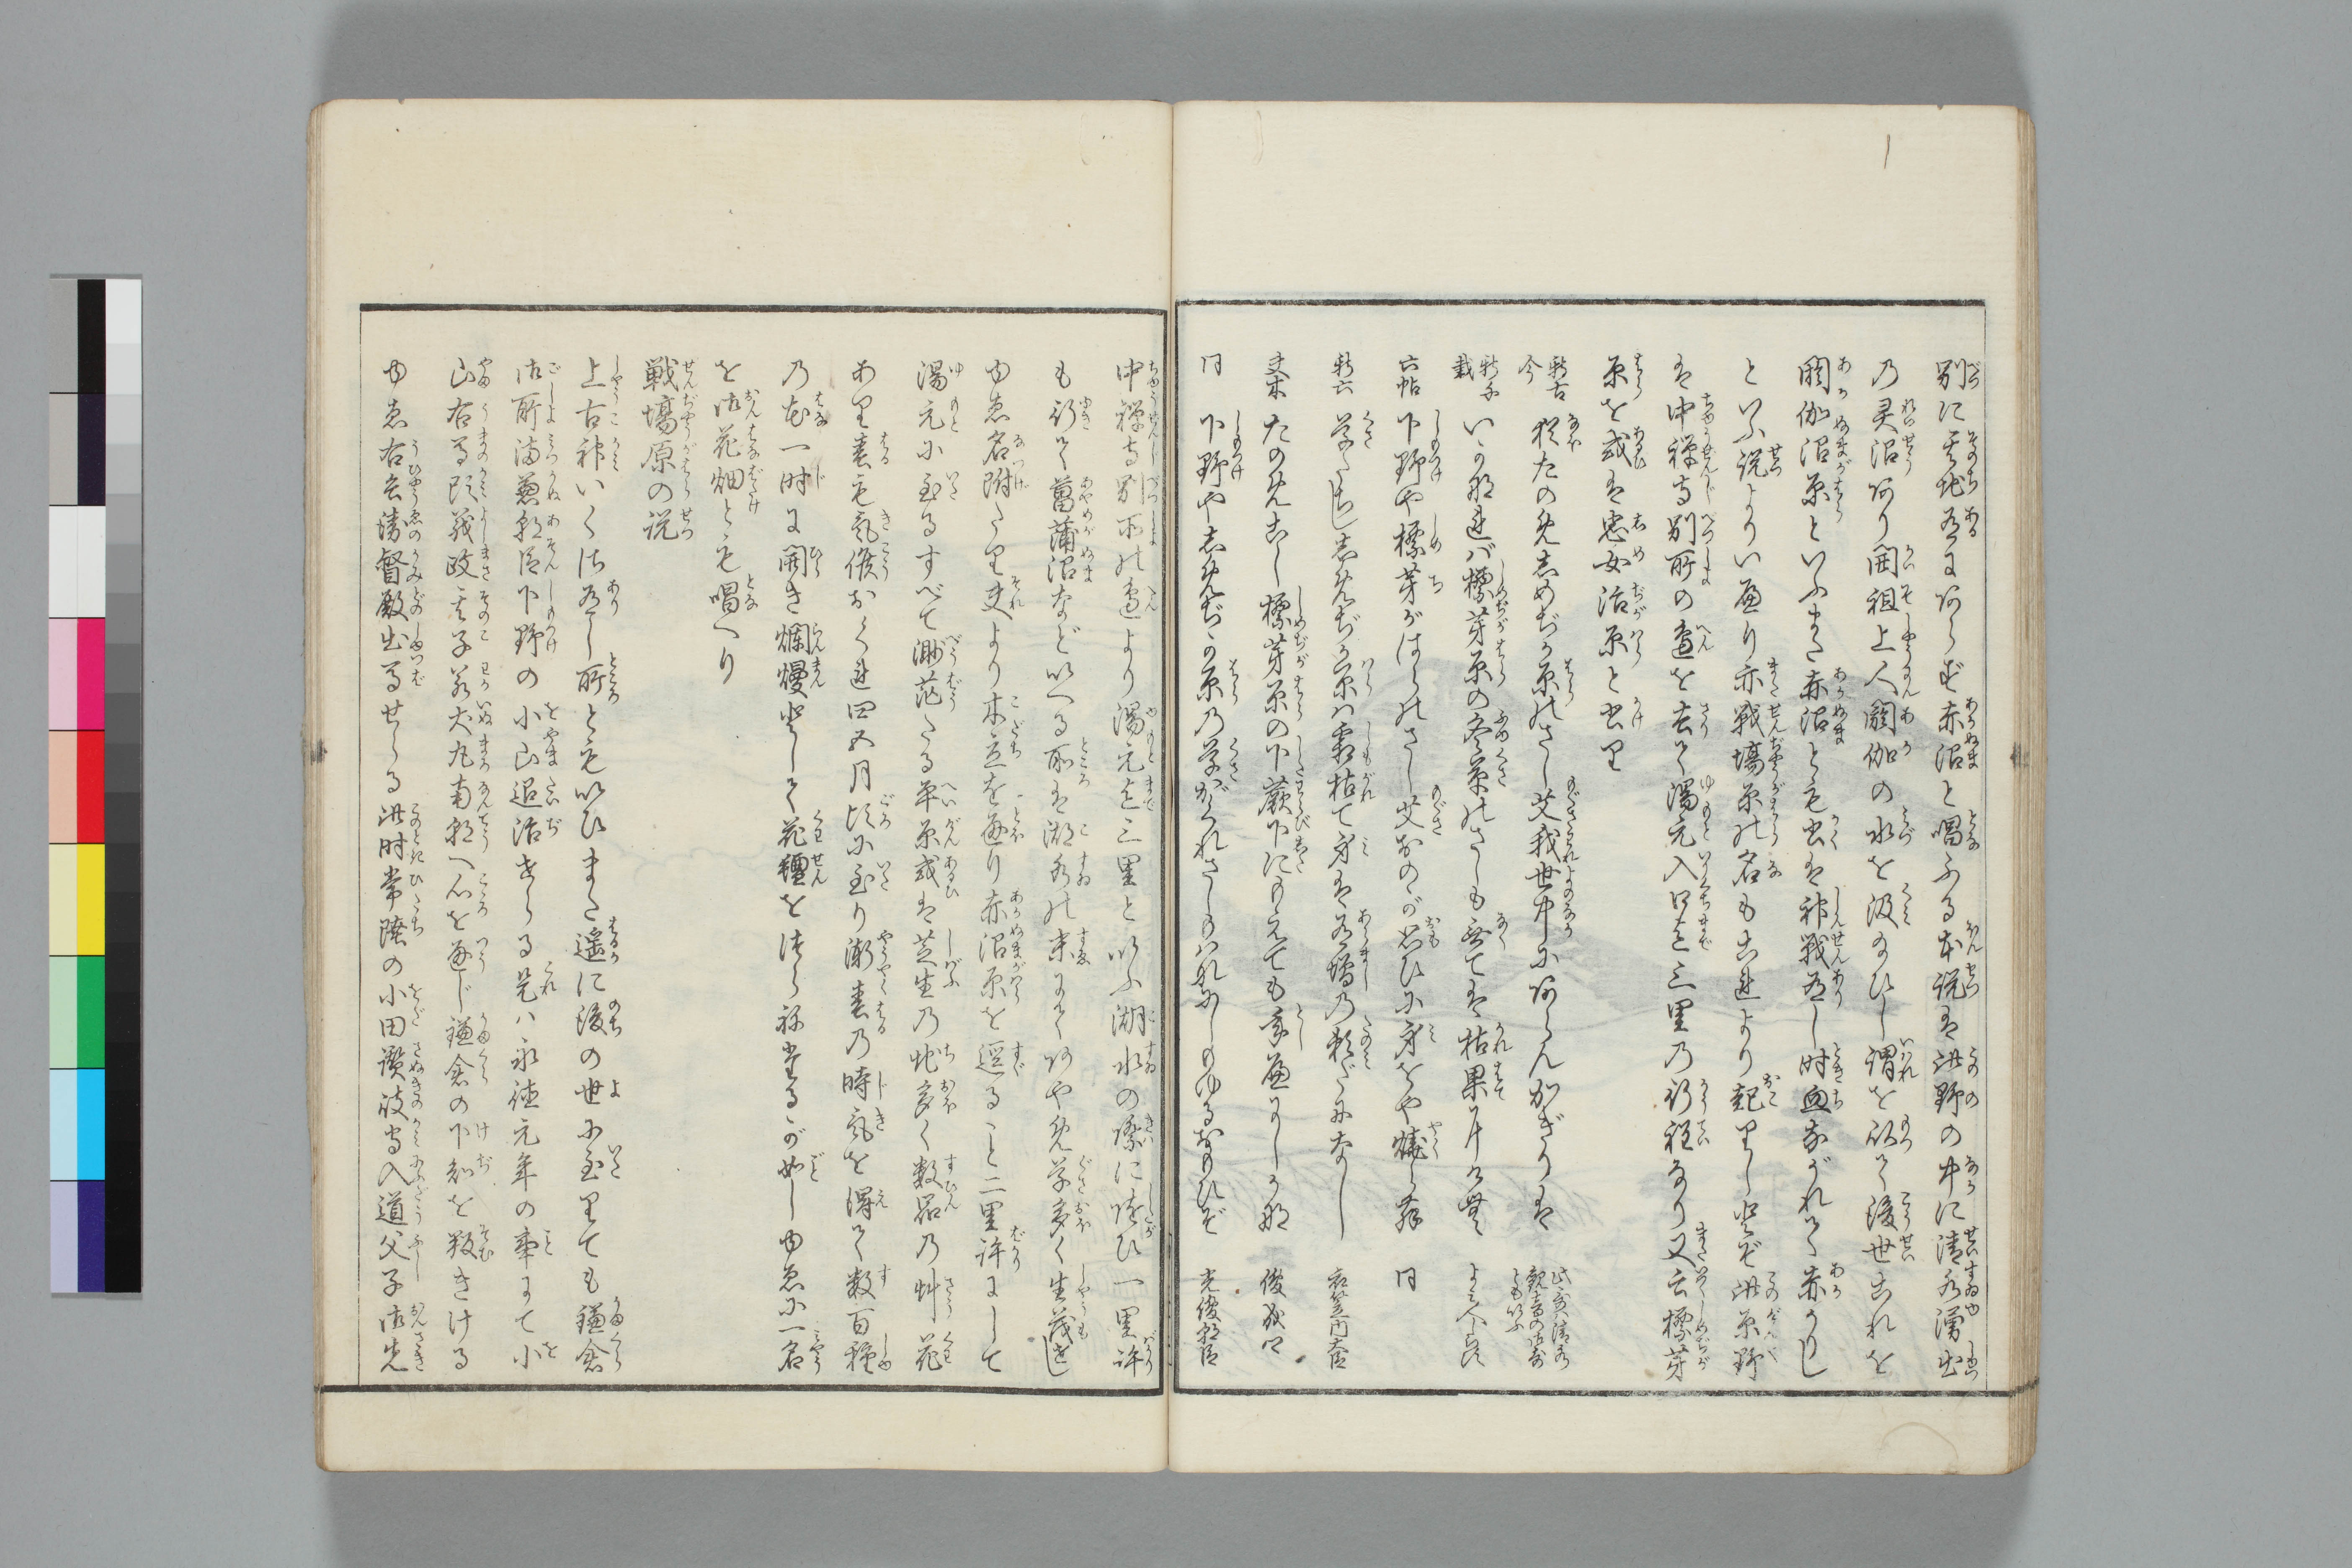 別に其地有にあらず赤沼と唱ふる本説は此野の中に清水湧出
の灵沼あり開祖上人閼伽の水を汲給ひし謂を以て後世これを
閼伽沼原といふまた赤沼とも書は神戦有し時血ながれて赤かりし
といふ説よりいへり亦戦場原の名もこれより起りしとぞ此原野
は中禅寺別所の邉を去て湯元入口迄三里の行程なり又云標芽
原を或は忠女治原と書り
新古今 猶たのめしめぢが原のさしも艾我世中にあらんかぎりは 此哥ハ清水観音の御哥とも以ふ
新千載 いかなれば標芽原の冬草のさしも無ては枯果にけむ よみ人しらず
六帖 下野や標芽がはらのさしも艾おのが思ひに身をや焼らん 同
新六 草くちししめぢが原ハ霜枯て身は有増の頼だになし 衣笠内大臣
夫木 たのめこし標芽原の下蕨下にもえても年へにしかな 俊成卿
同 下野やしめぢか原の草がくれさしもハなにしもゆるおもひぞ 光俊朝臣
中禅寺別所の邉より湯元迄三里と以ふ湖水の際に随ひ一里許
も行て菖蒲沼など以へる所は湖水の末にてあやめ草多く生茂し
ゆゑ名附たり夫より木立を通り赤沼原を過ること二里許にして
湯元に至るすべて渺茫たる平原或は芝生の地多く数品の艸花
あり春も気候おくれ四五月頃に至り漸春の時気を得て数百種
の花一時に開き爛熳として花氈を徒らね里るが如しゆゑに一名
を御花畑とも唱へり
戦場原の説
上古神いくさ有し所とも以ひまた遥に後の世に至りても鎌倉
御所満兼朝臣下野の小山退治せらる是ハ永徳元年の事にて小
山右馬頭義政其子若犬丸南朝へ心を通じ鎌倉の下知を叛きける
ゆゑ右兵衛督殿出馬せらる此時常陸の小田讃岐守入道父子御先